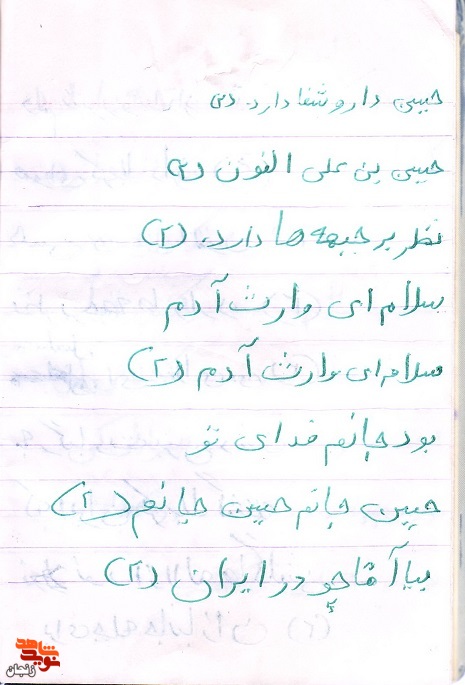 حسین دارو شفا دارد. (۲)
حسین بن علی الفون (۲)
نظر بر جبهه ها دارد. (۲)
سلام ای وارث آدم
سلام ای وارث آدم (۲)
بود جانم فدای تو
حسین جانم حسین جانم (۲)
بیا آقا چو در ایران (۲)
نوید شاهد
زنجان